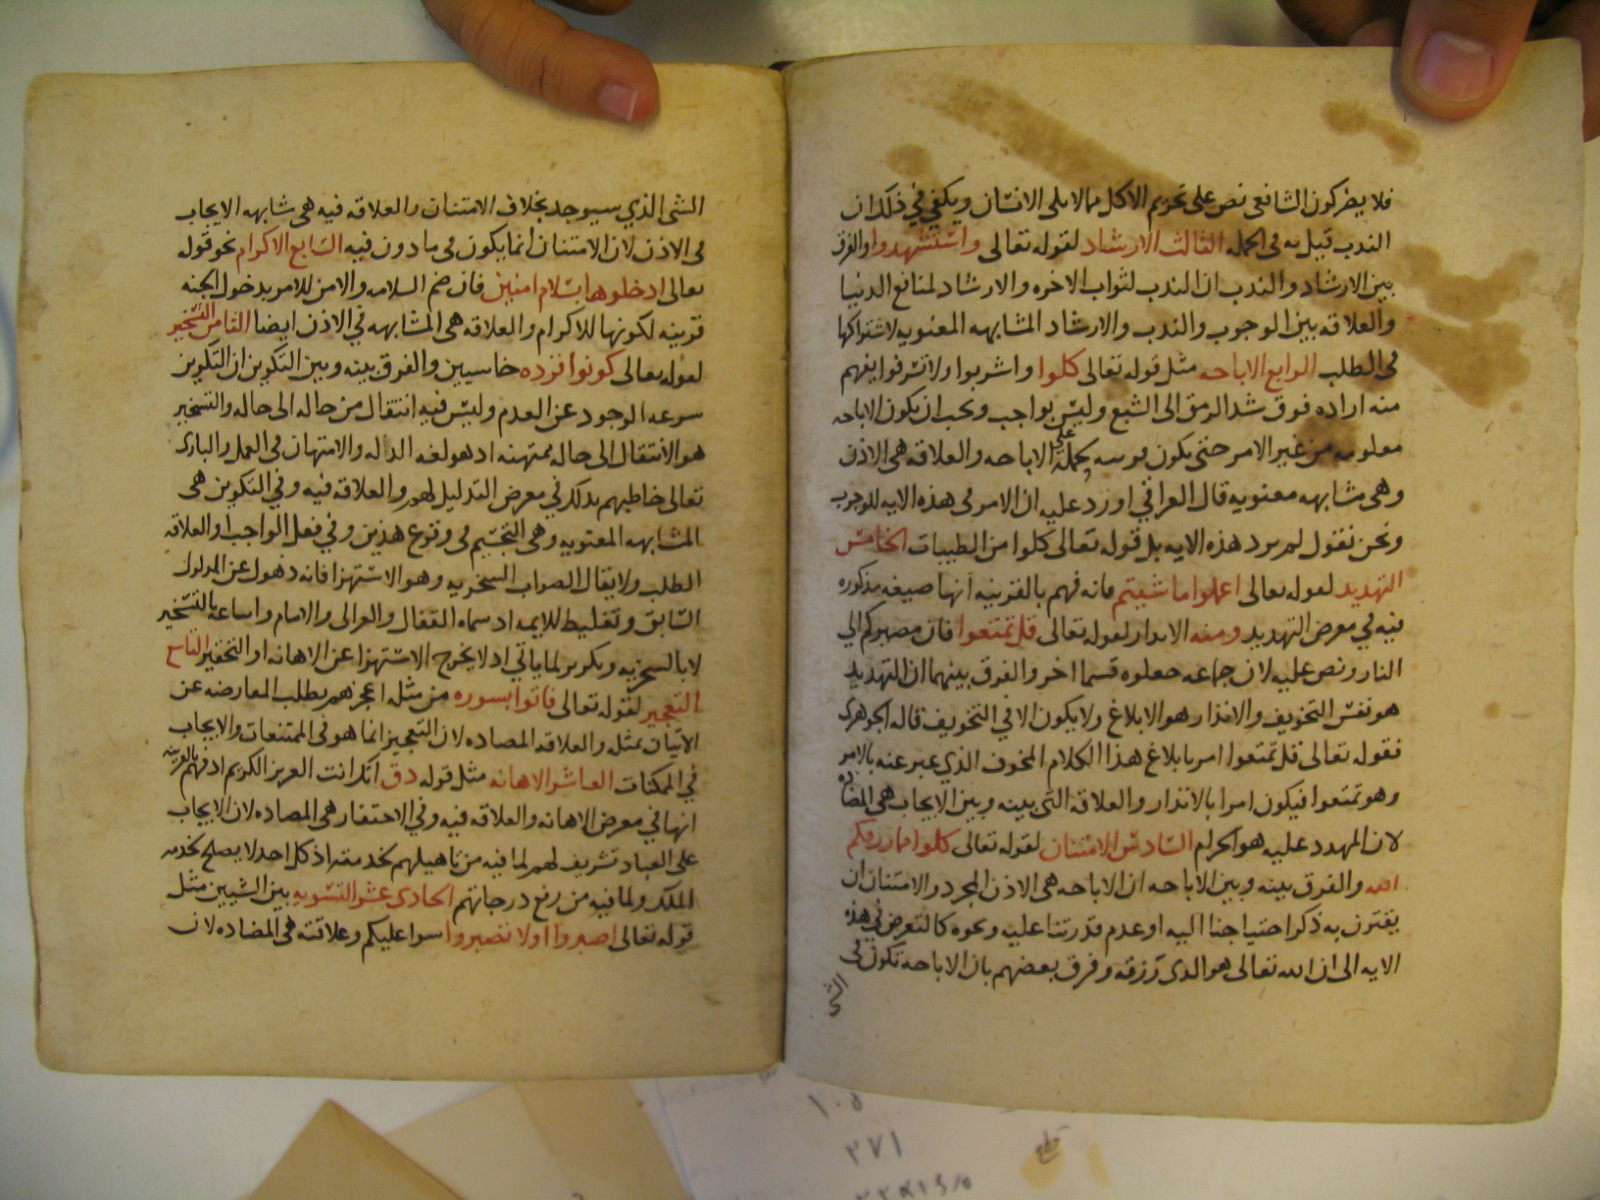 فلا يضر كون الشافعي نص على تحريم الاكل مما لا يلى الانسان ويكفي في ذلك ان
الندب قيل به في الجمله الثالث الارشاد لقوله تعالى واستشهدوا والفرق
بين الارشاد والندب ان الندب لثواب الاخره والارشاد لمنافع الدنيا
والعلاقه بين الوجوب والندب والارشاد المشابهه المعنويه لاشتراكها
في الطلب الرابع الاباحه مثل قوله تعالى كلوا واشربوا ولا تسرفوا يفهم
منه اراده فوق شد الرمق الى الشبع وليس بواجب ويجب ان يكون الاباحه
معلومه من غير الامر حتى يكون قرينه لحمله على الاباحه والعلاقه هي الاذن
وهي مشابهه معنويه قال العراقي اورد عليه ان الامر في هذه الايه للوجوب
ونحن نقول لم يرد هذه الايه بل قوله تعالى كلوا من الطيبات الخامس
التهديد لقوله تعالى اعملوا ما شيتم فانه فهم بالقرينه انها صيغه مذكوره
فيه في معرض التهديد ومنه الانذار لقوله تعالى قل تمتعوا فان مصيركم الي
النار ونص عليه لان جماعه جعلوه قسما اخر والفرق بينهما ان التهديد
هو نفس التخويف والانذار هو الابلاغ ولا يكون الا في التخويف قاله الجوهري
فقوله تعالى قل تمتعوا امر بابلاغ هذا الكلام المخوف الذي عبر عنه بالامر
وهو تمتعوا فيكون امرا بالانذار والعلاقه التى بينه وبين الايجاب هي المضاده
لان المهدد عليه هو الحرام السادس الامتنان لقوله تعالى كلوا مما رزقكم
الله والفرق بينه وبين الاباحه ان الاباحه هي الاذن المجرد والامتنان ان
يقترن به ذكر احتياجنا اليه او عدم قدرتنا عليه ونحوه كالتعرض في هذه
الايه الى ان الله تعالى هو الذي رزقه وفرق بعضهم بان الاباحه تكون في
الشي
الشي الذي سيوجد بخلاف الامتنان والعلاقه فيه هي مشابهه الايجاب
في الاذن لان الامتنان انما يكون في مادون فيه السابع الاكرام نحو قوله
تعالى ادخلوها بسلام امنين فان ضم السلامه والامن للامر بدخول الجنه
قرينه لكونها للاكرام والعلاقه هي المشابهه في الاذن ايضا الثامن التسخير
لقوله تعالى كونوا قرده خاسيين والفرق بينه وبين التكوين ان التكوين
سرعه الوجود عن العدم وليس فيه انتقال من حاله الى حاله والتسخير
هو الانتقال الى حاله ممتهنه اذ هو لغه الذله والامتهان في العمل والبارى
تعالى خاطبهم بذلك في معرض التذليل لهم والعلاقه فيه وفي التكوين هي
المشابهه المعنويه وهي التحتيم في وقوع هذين وفي فعل الواجب او العلاقه
الطلب ولا يقال الصواب السخريه وهو الاستهزا فانه ذهول عن المدلول
السابق وتغليط للايمه اذ سماه القفال والغزالى والامام واتباعه بالتسخير
لا بالسخريه ويكون لما ياتي اذ لا يخرج الاستهزا عن الاهانه او التحقير التاسع
التعجيز لقوله تعالى فاتوا بسوره من مثله اعجزهم بطلب المعارضه عن
الاتيان بمثله والعلاقه المضاده لان التعجيز انما هو في الممتنعات والايجاب
في الممكنات العاشر الاهانه مثل قوله ذق انك انت العزيز الكريم اذ فهم بالقرينه
انها في معرض الاهانه والعلاقه فيه وفي الاحتقار هي المضاده لان الايجاب
على العباد تشريف لهم لما فيه من تاهيلهم لخدمته اذ كل احد لا يصلح لخدمه
الملك ولما فيه من رفع درجاتهم الحادى عشر التسويه بين الشيين مثل
قوله تعالى اصبروا او لا تصبروا سوا عليكم وعلاقته هي المضاده لان
١٠٥
٣٧١